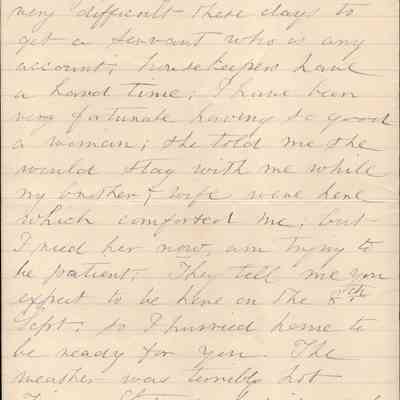 very difficult these days to
get a servant who is any
account; housekeepers have
a hard time; I have been
very fortunate having so good
a woman; she told me she
would stay with me while
my brother & wife were here
which comforted me, but
I need her now, am trying to
be patient. They tell me you
expect to be here on the 8th
Sept; so I hurried home to
be ready for you. The
weather was terribly hot